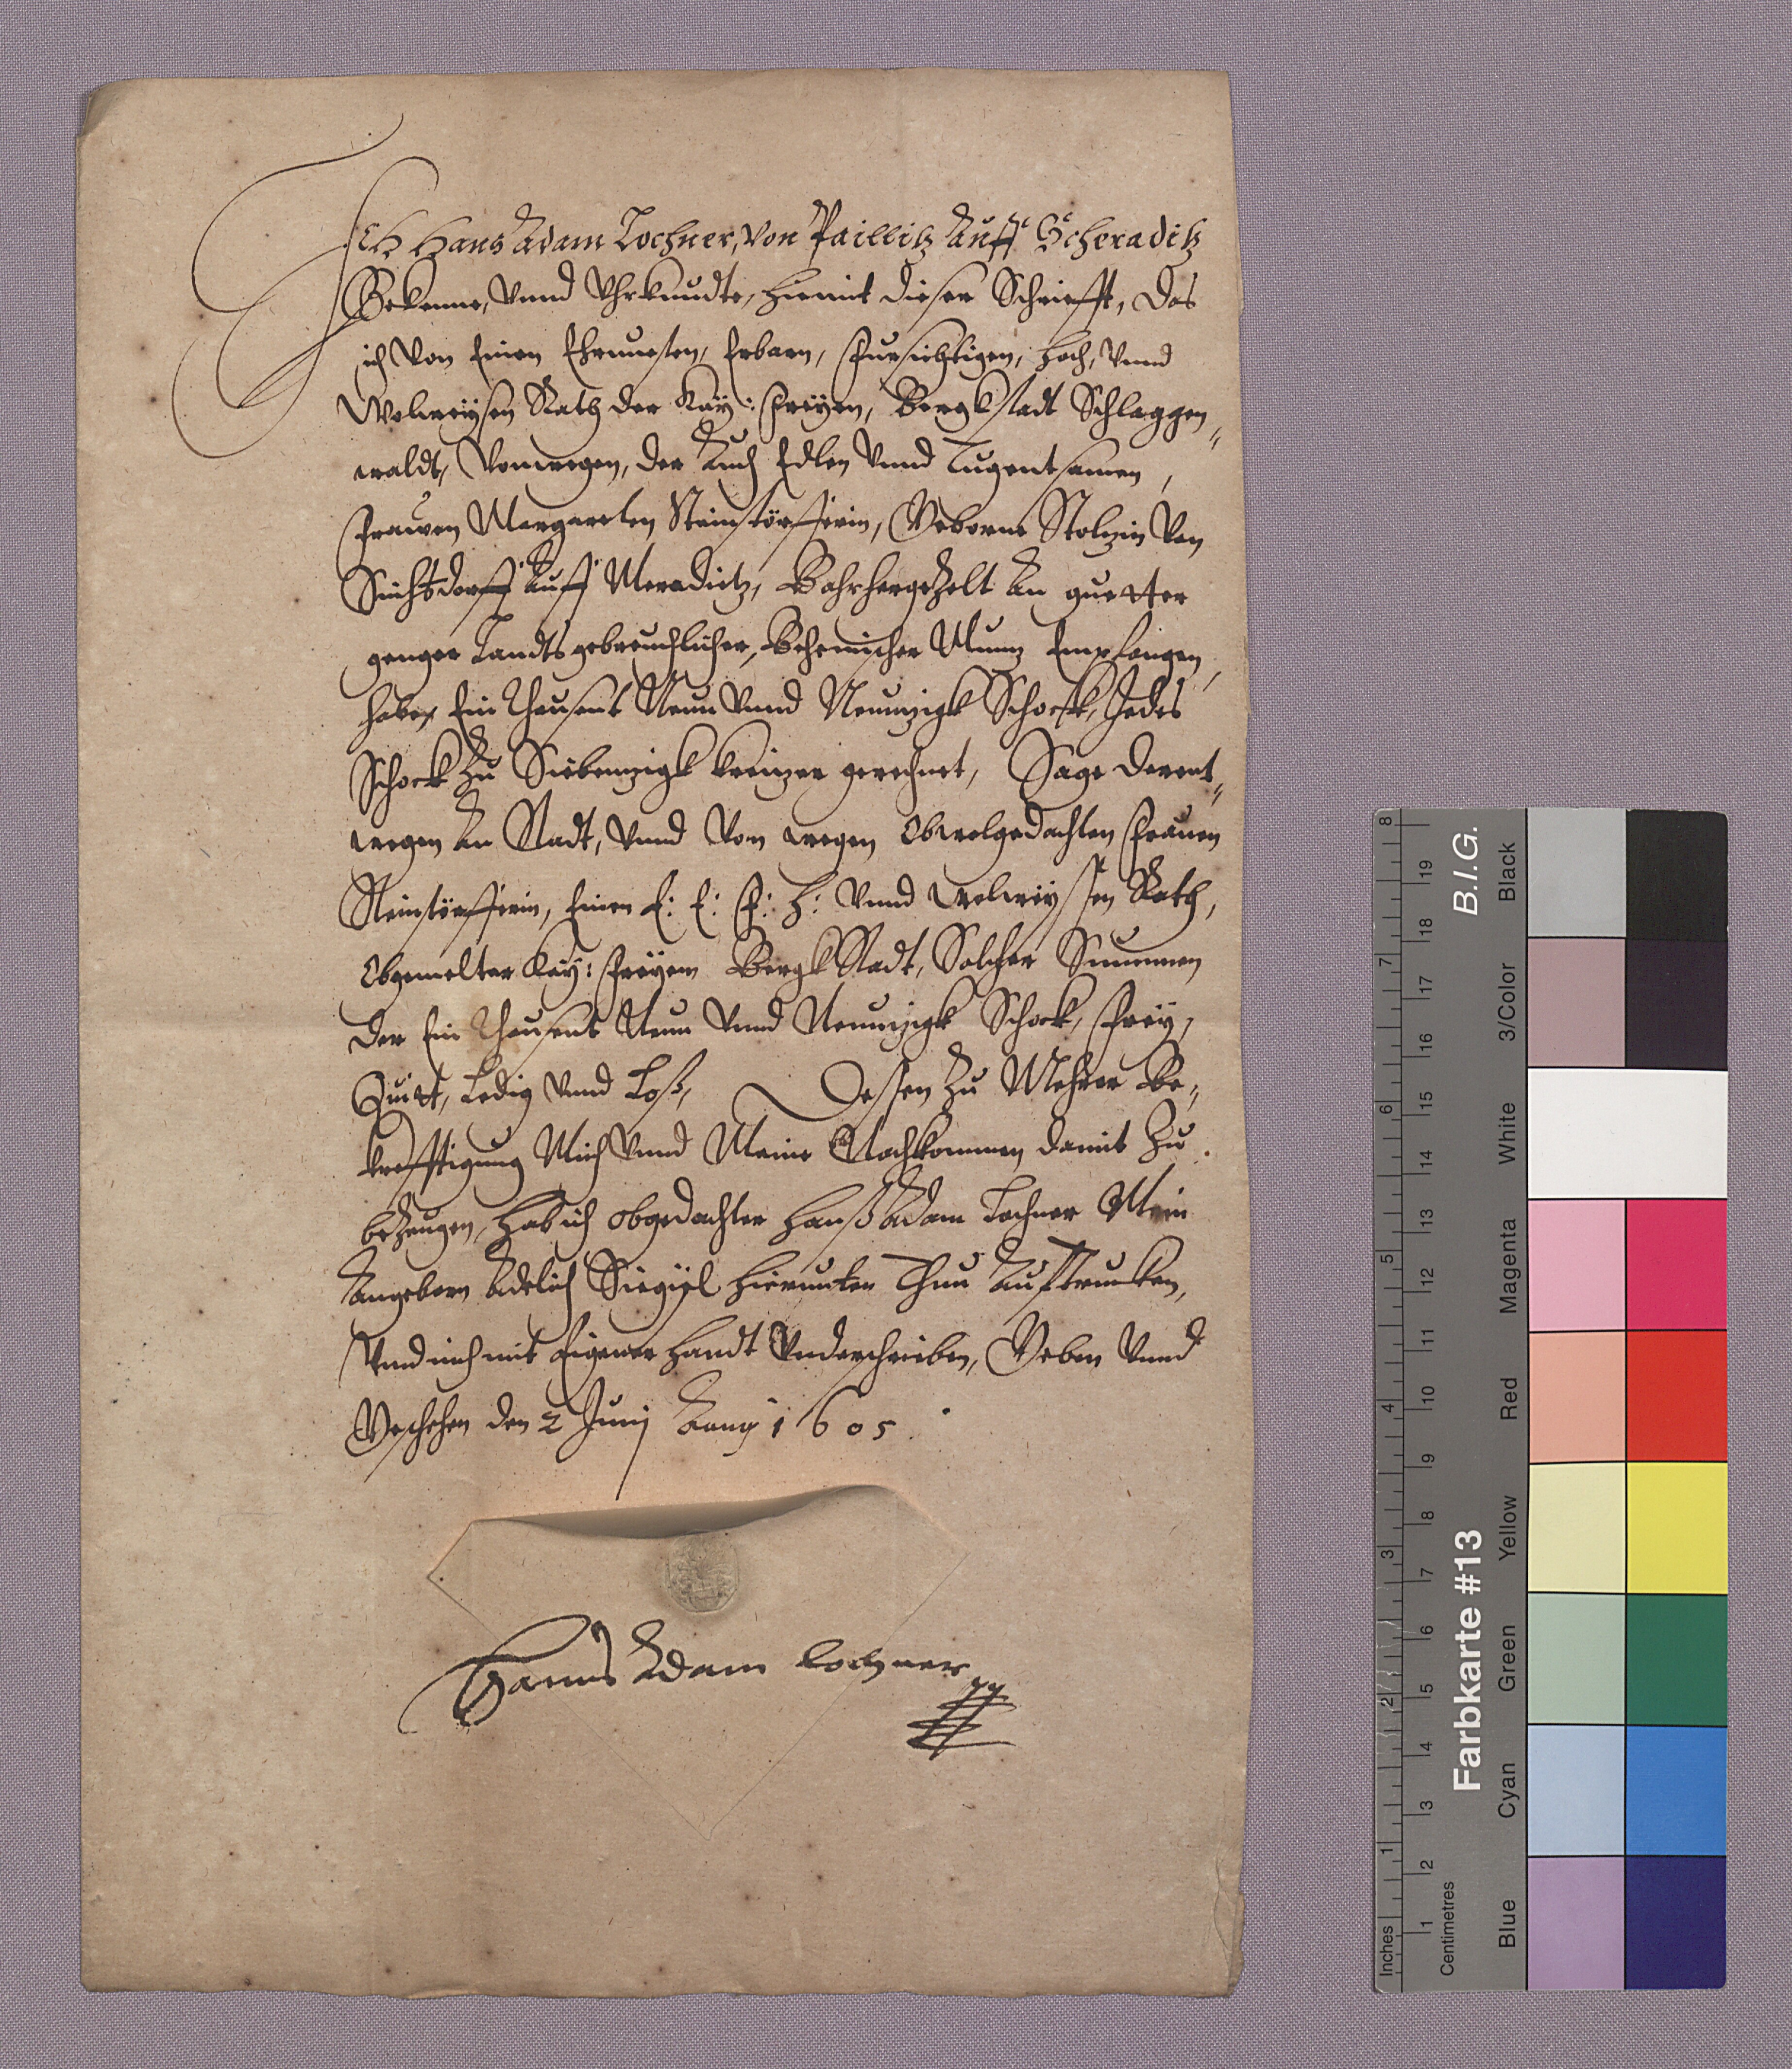 Ich Hans Adam Lochner, von Paillitz Auff Scheraditz
Bekenne, Vnnd Vhrkundte, hiemit dieser Schriefft, Das
ich Von Einen Ehrnuesten, Erbarn, Fursichtigen, Hoch, Vnnd
Wolweÿsen Rath der Kaÿ: Freÿen, Bergkstadt Schlaggen„
waldt, Vonwegen, der Auch Edlen Vnnd Tugentsamen,
Frawen Margareten Steinstörfferin, Geborne Stolzin Von
auff Meraditz, An guetter
genger Landts gebreuchlicher, Behemischer Muntz Empfangen,
habe, Ein Thausent Neun Vnnd Neunzigk Schock, Jedes
Schock Zu Siebenzigk kreüzer gerechnet, Sage Derent„
wegen An Stadt, Vnnd Von wegen Obwolgedachten Frauen
Steinstörfferin, Einen E: E: F: H: Vnnd Wolweÿsen Rath,
Obgemelter Kaÿ: Freÿen Bergk Stadt, Solcher Summen
der Ein Thausent Neun Vnnd Neunzigk Schock, Freÿ,
Quitt, Ledig Vnnd Loß, Dessen Zu Mehrer Be„
krefftigung Mich Vnnd Meine Nachkommen damit Zu
beZeugen, Hab ich obgedachter Hanß Adam Lochner Mein
Angeborn Adelich hierunter Thun Aufftrucken,
Vnnd mich mit Eigener Handt Vnderschrieben, Geben Vnnd
Geschehen den 2 Junij Anno 1605.
Hanns Adam Lochner
B.I.G.
Farbkarte #13
Inches
Centimetres
1 2 3 4 5 6 7 8
1 2 3 4 5 6 7 8 9 10 11 12 13 14 15 16 17 18 19
Blue
Cyan
Green
Yellow
Red
Magenta
White
3/Color
Black